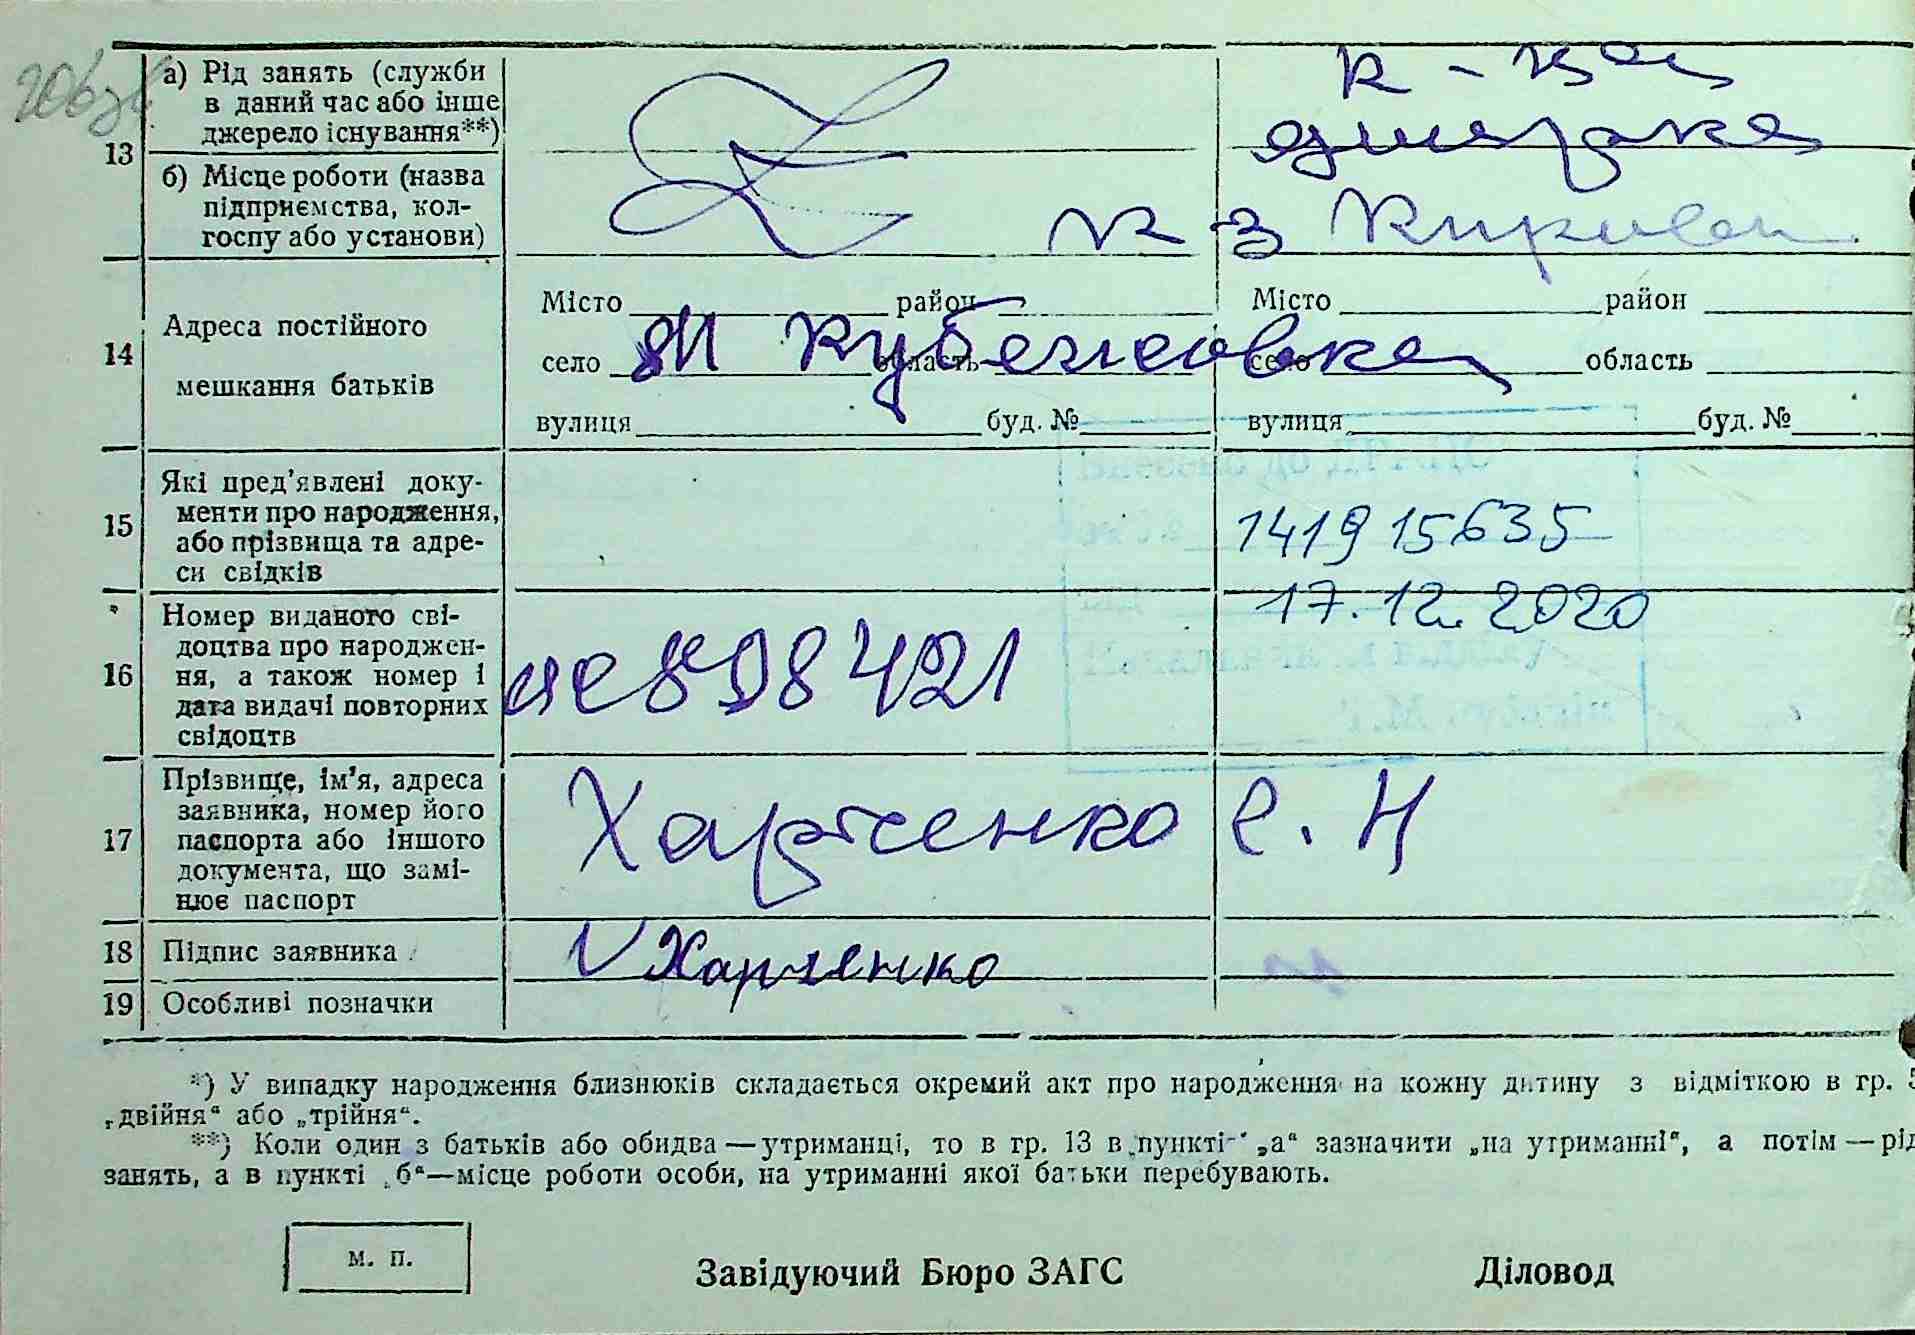 13
а) Рід занять (служби
в даний час або інше
джерело існування**)
б) Місце роботи (назва
підприємства, кол-
госпу або установи)
к-з Кирова
14
Адреса постійного
мешкання батьків
Місто район
село область
вулиця буд. №
Місто район
село область
вулиця буд. №
15
Які пред’явлені доку-
менти про народження,
або прізвища та адре-
си свідків
1419 15635
17.12.2020
16
Номер виданого сві-
доцтва про народжен-
ня, а також номер і
дата видачі повторних
свідоцтв
17
Прізвище, ім’я, адреса
заявника, номер його
паспорта або іншого
документа, що замі-
нює паспорт
Харченко Е. Н
18
Підпис заявника
Харченко
19
Особливі позначки
*) У випадку народження близнюків складається окремий акт про народження на кожну дитину з відміткою в гр. 5
„двійня“ або „трійня“.
**) Коли один з батьків або обидва — утриманці, то в гр. 13 в пункті „а“ зазначити „на утриманні“, а потім — рід
занять, а в пункті „б“—місце роботи особи, на утриманні якої батьки перебувають.
м. п.
Завідуючий Бюро ЗАГС
Діловод